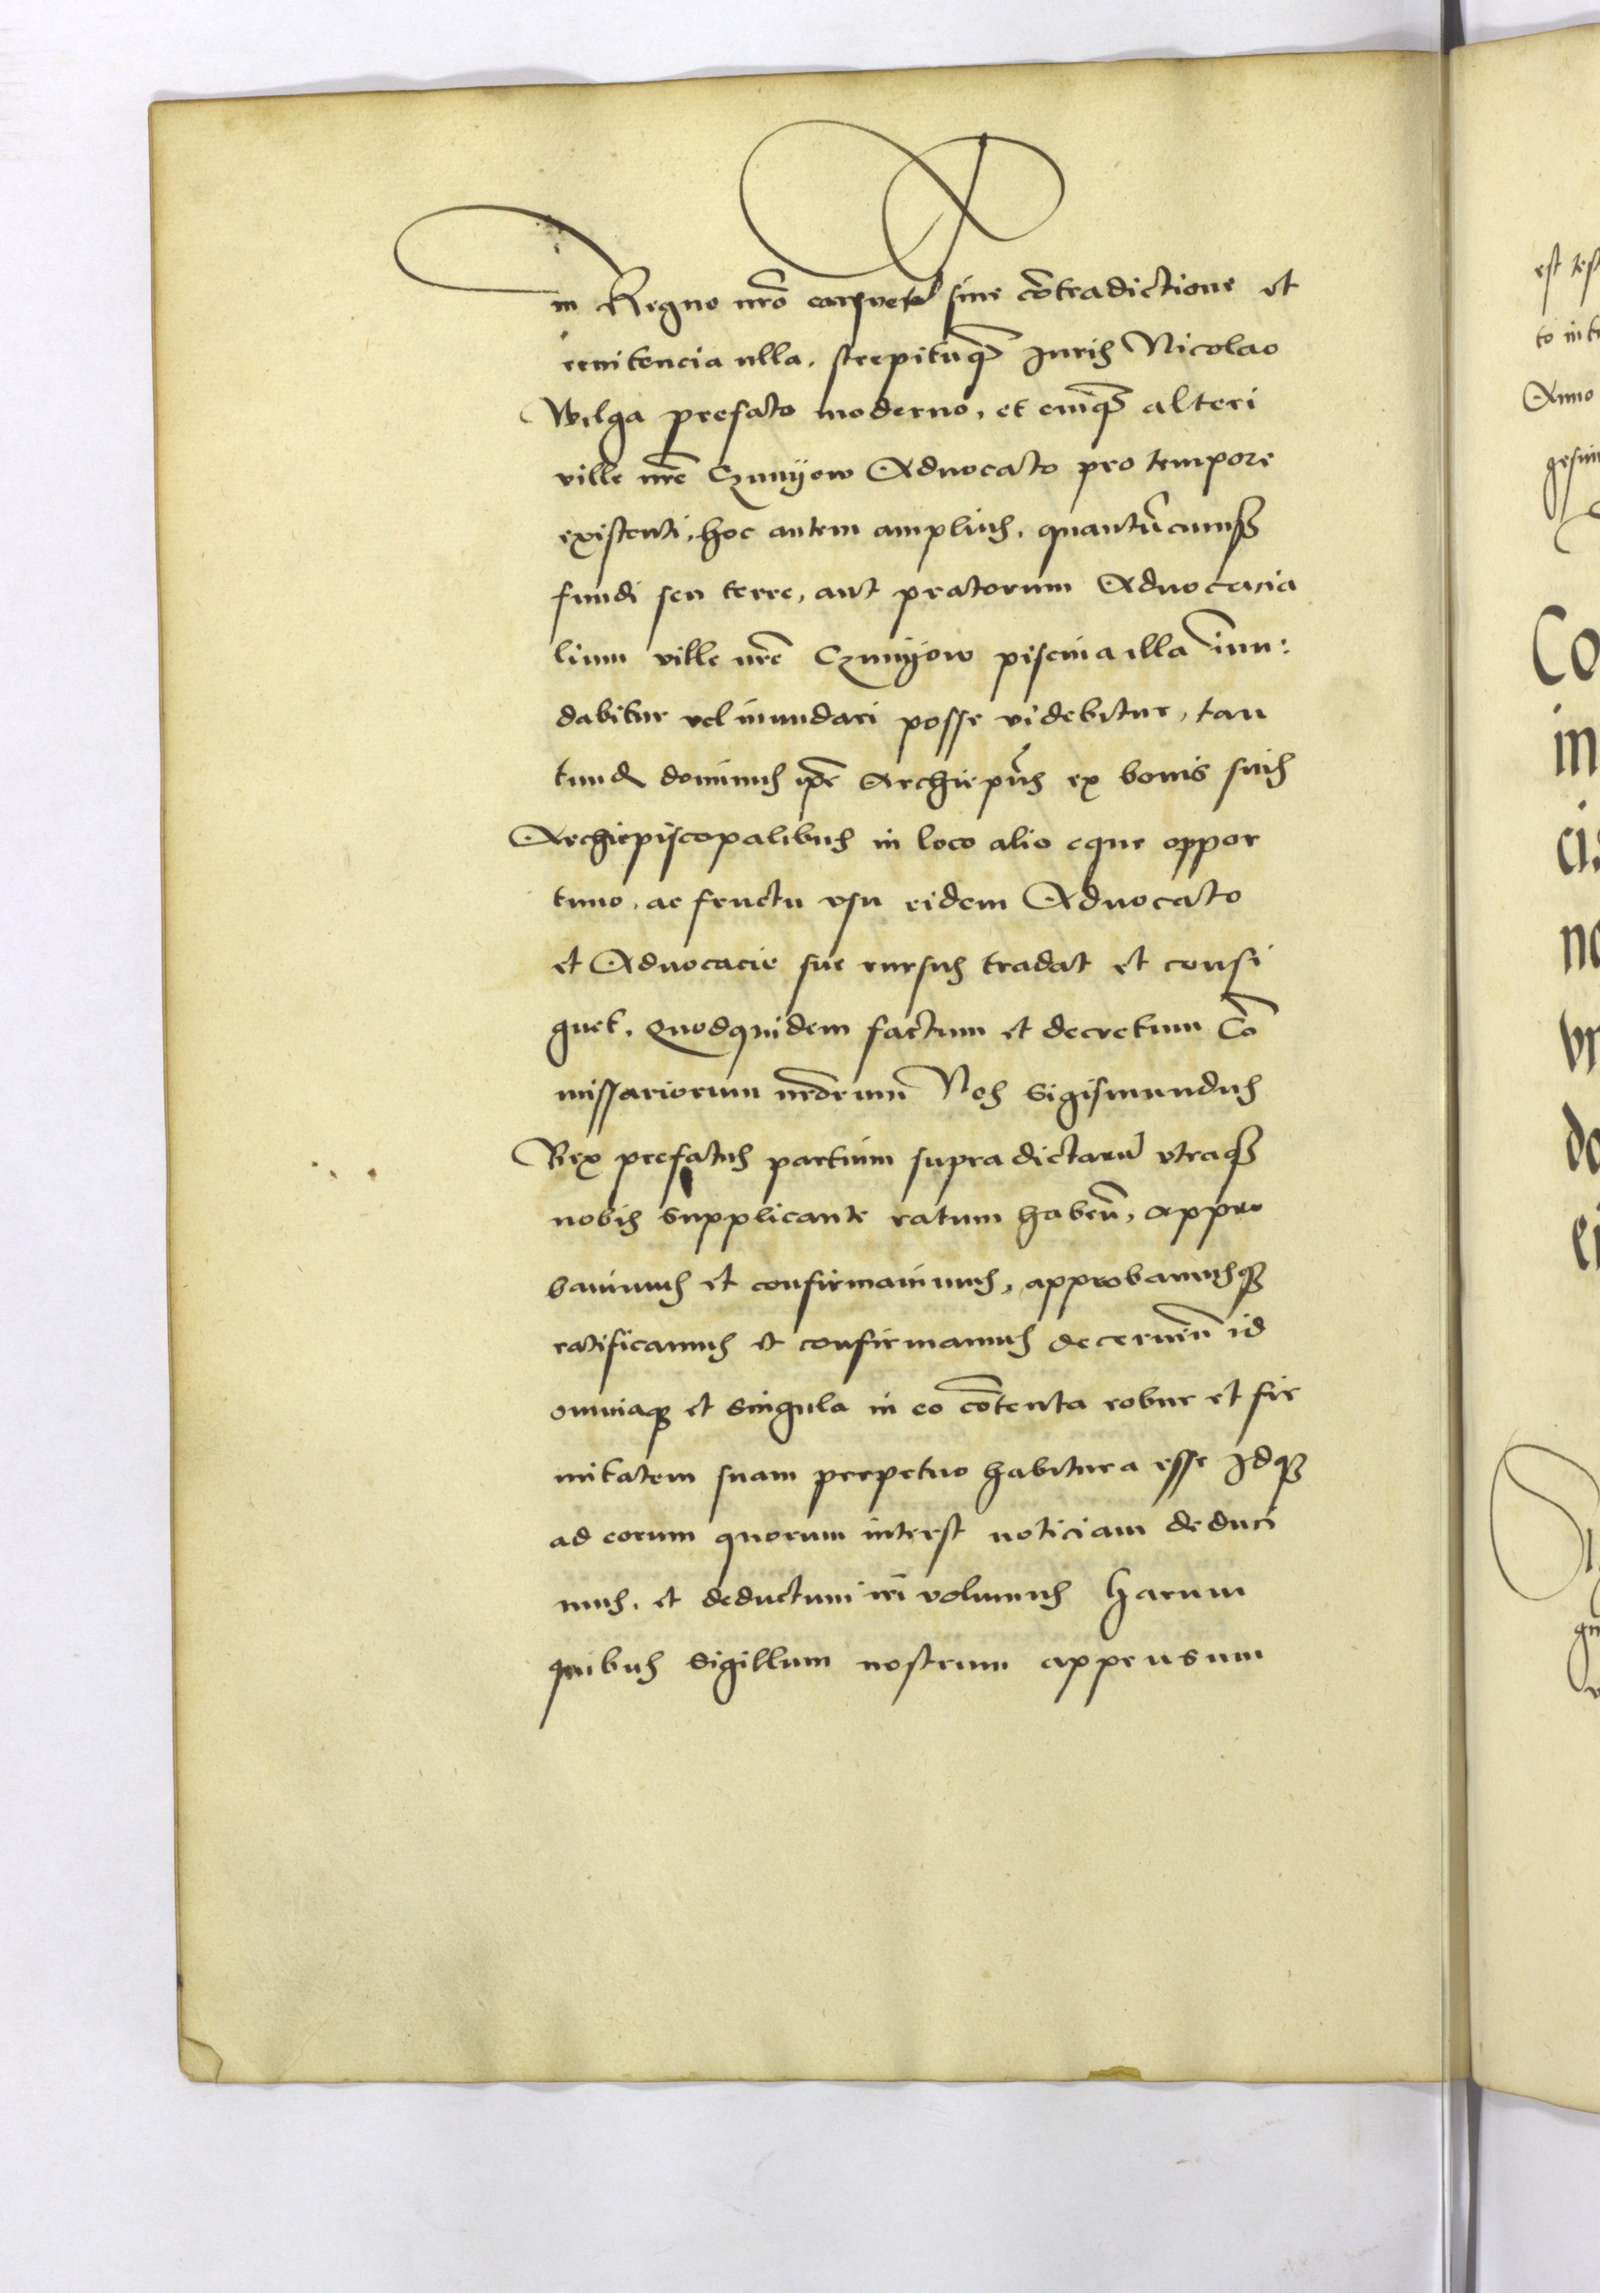 in Regno nrõ consueta sine cõtradictione et
renitencia ulla, strepituqȝ Juris Nicolao
Wilga prefato moderno, et cuiqȝ alteri
ville nrẽ Czunijow Aduocato pro tempore
existenti, hoc autem amplius, quantũcumqȝ
fundi seu terre, aut pratorum Aduocacia
lium ville nrẽ Czunijow piscina illa inun:
dabitur vel inundari posse videbitur, tan
tundẽ dominus ipẽ Archiepũs ex bonis suis
Archiepiscopalibus in loco alio eque oppor
tuno, ac fructu vsu eidem Aduocato
et Aduocacie sue rursus tradat et consi
gnet, Quodquidem factum et decretum Cõ
missariorum nrõrum Nos Sigismundus
Rex prefatus partium supradictarũ vtraqȝ
nobis supplicante ratum habeñ, appro
bauimus et confirmauimus, approbamusqȝ
ratificamus et confirmamus decerneñ id
omniaqȝ et singula in eo cõtenta robur et fir
mitatem suam perpetuo habitura esse Idqȝ
ad eorum quorum interest noticiam deduci
mus, et deductum iri volumus harum
quibus Sigillum nostrum appensum
est
to
Anno
Co
in